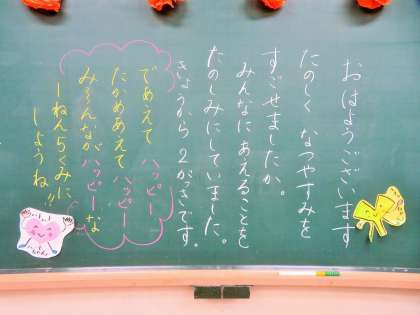 おはようございます
たのしく なつやすみを
すごせましたか。
みんなに あえることを
たのしみにしていました。
きょうから 2がっきです。
であえて ハッピー
たかめあえて ハッピー
み〜んなが ハッピー な
1ねん5くみに
しようね!!